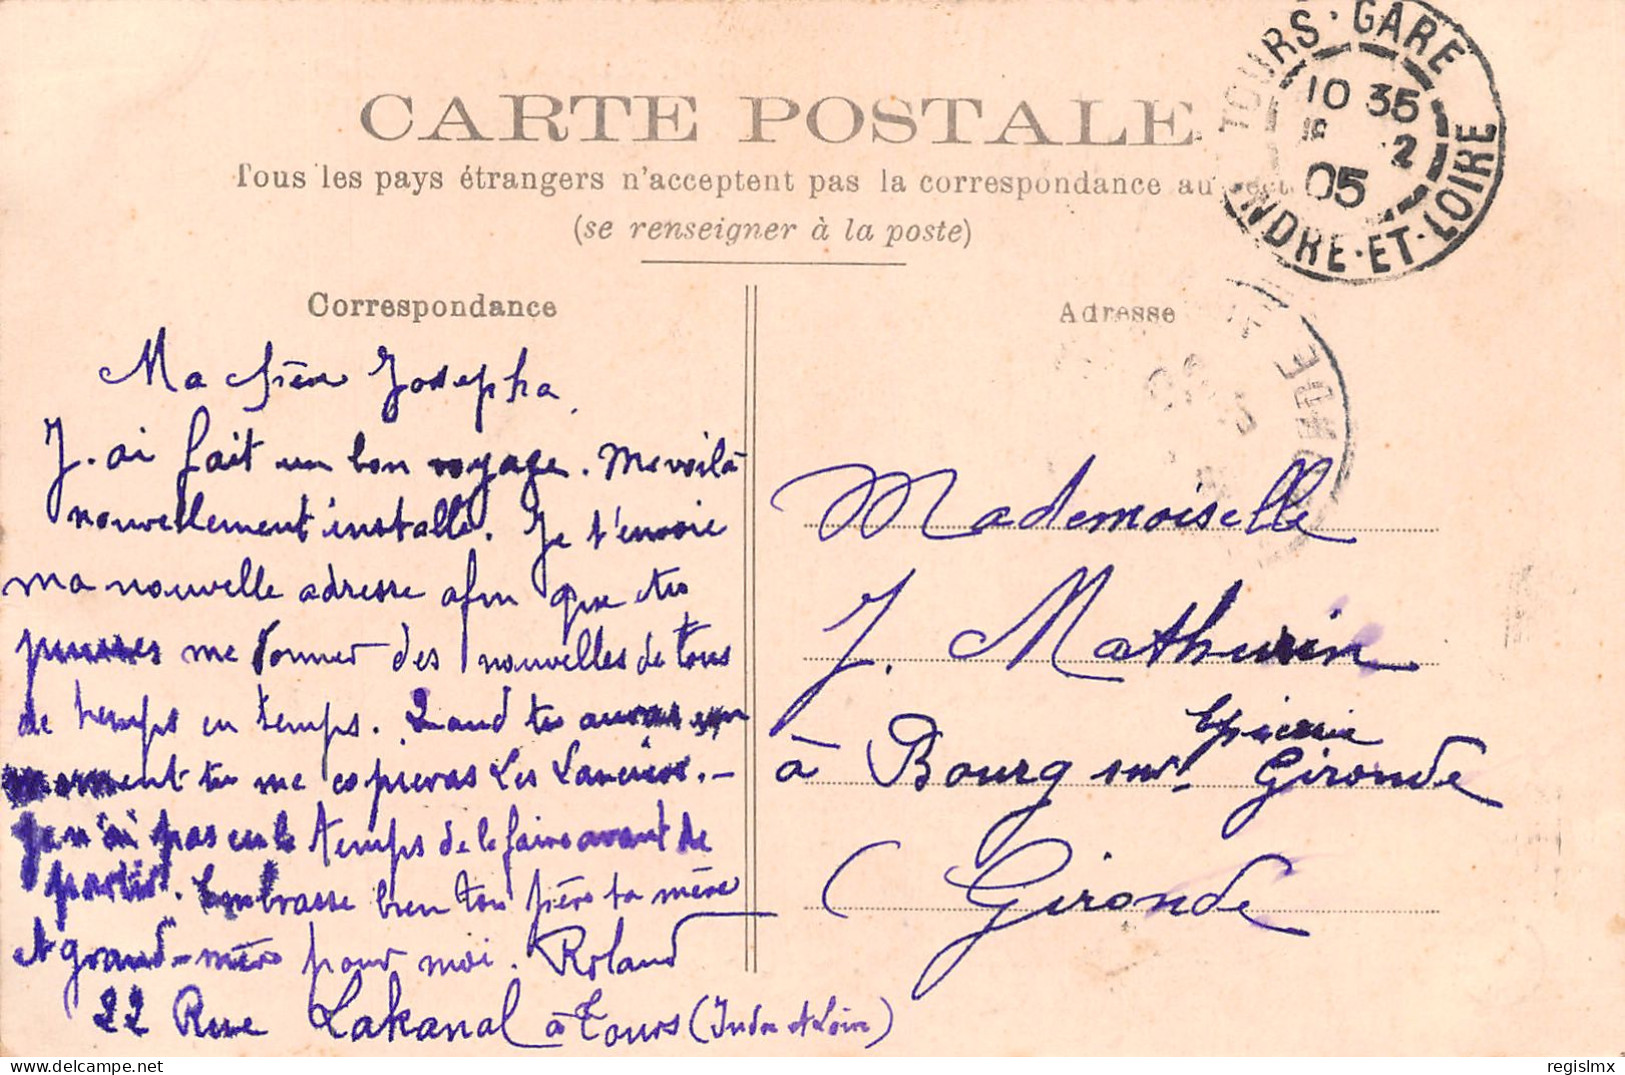 CARTE POSTALE
Tous les pays étrangers n'acceptent pas la correspondance au
(se renseigner à la poste)
TOURS · GARE
10 35
2
05
INDRE-ET-LOIRE
Correspondance
Ma chère Josepha,
J'ai fait un bon voyage. Me voilà
nouvellement installé. Je t'envoie
ma nouvelle adresse afin que tu
puisses me donner des nouvelles de tous
de temps en temps. Quand tu auras un
moment tu me copieras Les Lanciers. —
Je n'ai pas eu le temps de le faire avant de
partir. Embrasse bien ton père ta mère
et grand-mère pour moi. Roland
22 Rue Lakanal à Tours (Indre et Loire)
Adresse
Mademoiselle
J. Mathurin
Epicerie
à Bourg sur Gironde
(Gironde
regislmx